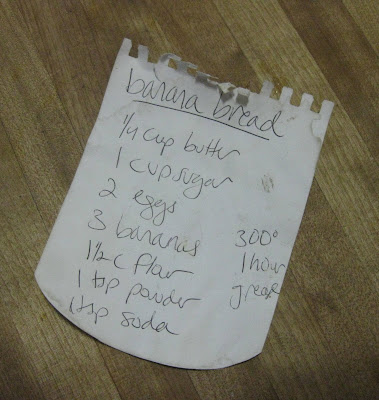 banana bread
1/4 cup butter
1 cup sugar
2 eggs
3 bananas
1 1/2 c flour
1 tsp powder
1 tsp soda
300°
1 hour
grease